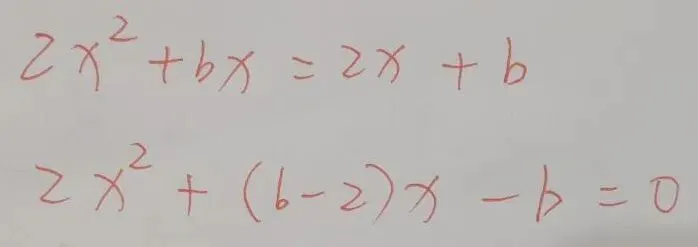 2x² + bx = 2x + b
2x² + (b-2)x - b = 0